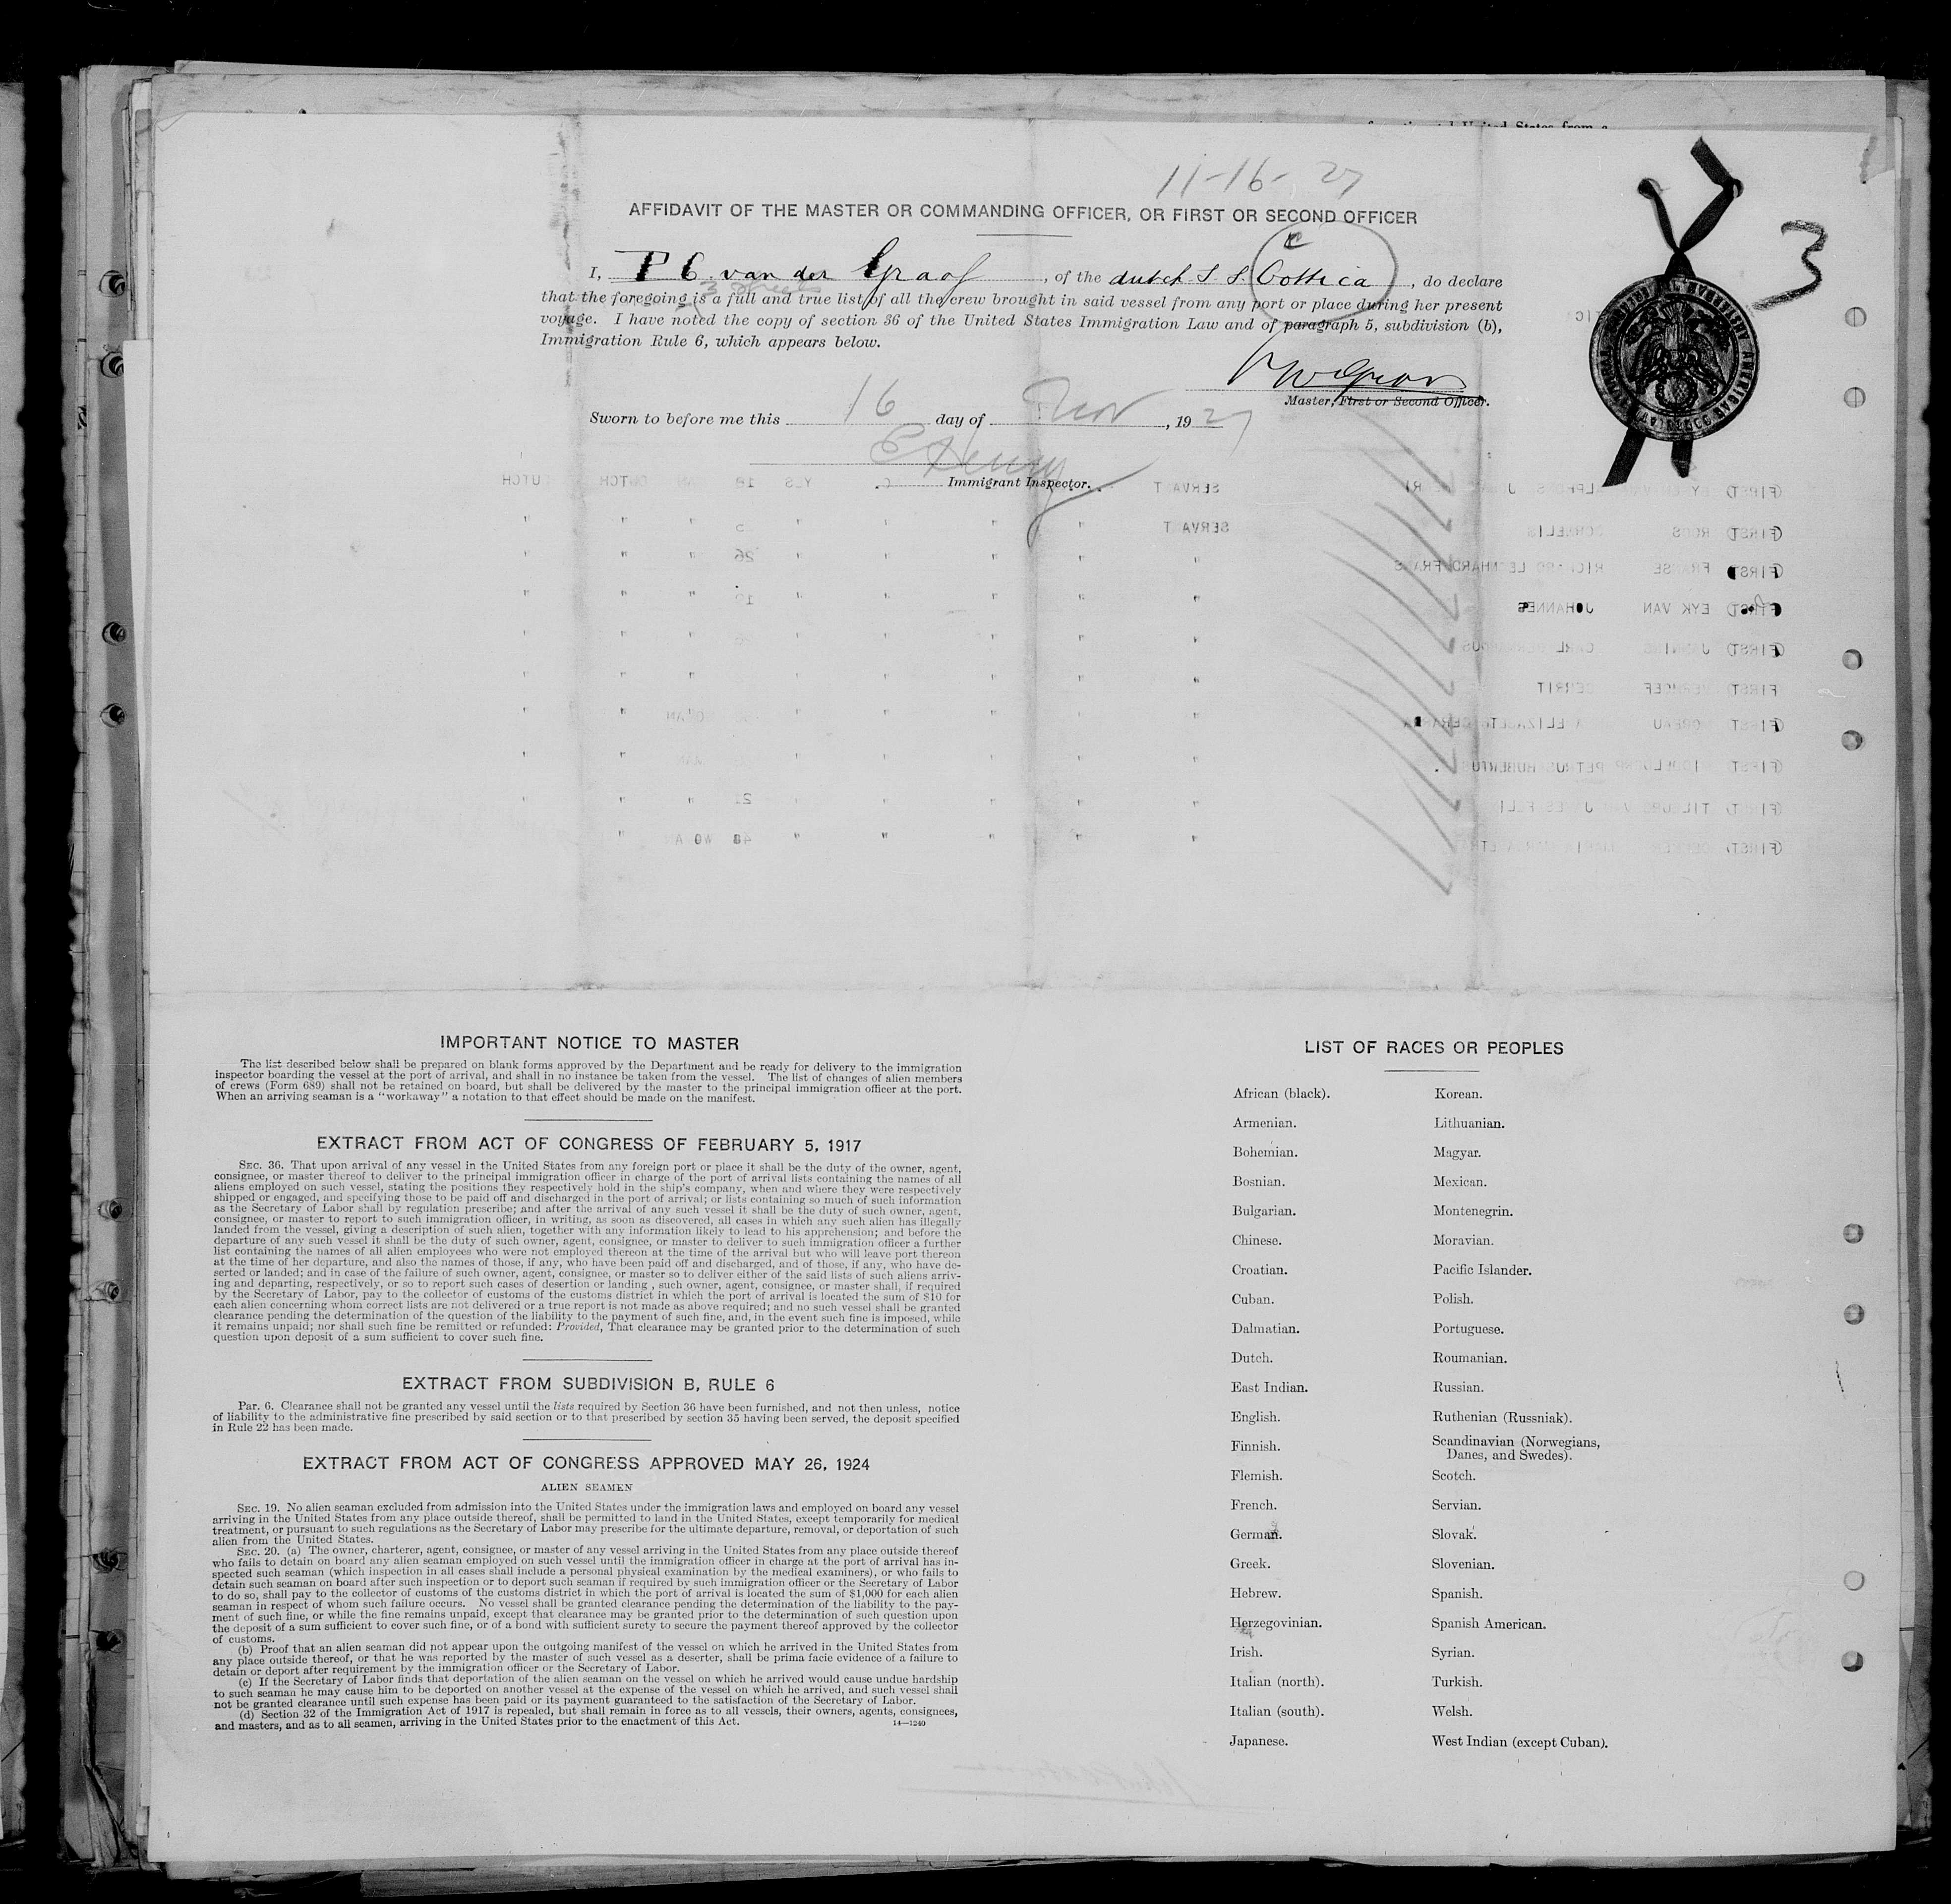 11-16-27
AFFIDAVIT OF THE MASTER OR COMMANDING OFFICER, OR FIRST OR SECOND OFFICER
3
I, P C. van der Graaf, of the dutch S. S. Cottica, do declare
3 sheets
that the foregoing is a full and true list of all the crew brought in said vessel from any port or place during her present
voyage. I have noted the copy of section 36 of the United States Immigration Law and of paragraph 5, subdivision (b),
Immigration Rule 6, which appears below.
Master, First or Second Officer.
Sworn to before me this 16 day of Nov, 1927
E Henry
Immigrant Inspector.
IMPORTANT NOTICE TO MASTER
The list described below shall be prepared on blank forms approved by the Department and be ready for delivery to the immigration
inspector boarding the vessel at the port of arrival, and shall in no instance be taken from the vessel. The list of changes of alien members
of crews (Form 689) shall not be retained on board, but shall be delivered by the master to the principal immigration officer at the port.
When an arriving seaman is a "workaway" a notation to that effect should be made on the manifest.
EXTRACT FROM ACT OF CONGRESS OF FEBRUARY 5, 1917
SEC. 36. That upon arrival of any vessel in the United States from any foreign port or place it shall be the duty of the owner, agent,
consignee, or master thereof to deliver to the principal immigration officer in charge of the port of arrival lists containing the names of all
aliens employed on such vessel, stating the positions they respectively hold in the ship's company, when and where they were respectively
shipped or engaged, and specifying those to be paid off and discharged in the port of arrival; or lists containing so much of such information
as the Secretary of Labor shall by regulation prescribe; and after the arrival of any such vessel it shall be the duty of such owner, agent,
consignee, or master to report to such immigration officer, in writing, as soon as discovered, all cases in which any such alien has illegally
landed from the vessel, giving a description of such alien, together with any information likely to lead to his apprehension; and before the
departure of any such vessel it shall be the duty of such owner, agent, consignee, or master to deliver to such immigration officer a further
list containing the names of all alien employees who were not employed thereon at the time of the arrival but who will leave port thereon
at the time of her departure, and also the names of those, if any, who have been paid off and discharged, and of those, if any, who have de-
serted or landed; and in case of the failure of such owner, agent, consignee, or master so to deliver either of the said lists of such aliens arriv-
ing and departing, respectively, or so to report such cases of desertion or landing , such owner, agent, consignee, or master shall, if required
by the Secretary of Labor, pay to the collector of customs of the customs district in which the port of arrival is located the sum of $10 for
each alien concerning whom correct lists are not delivered or a true report is not made as above required; and no such vessel shall be granted
clearance pending the determination of the question of the liability to the payment of such fine, and, in the event such fine is imposed, while
it remains unpaid; nor shall such fine be remitted or refunded: Provided, That clearance may be granted prior to the determination of such
question upon deposit of a sum sufficient to cover such fine.
EXTRACT FROM SUBDIVISION B, RULE 6
Par. 6. Clearance shall not be granted any vessel until the lists required by Section 36 have been furnished, and not then unless, notice
of liability to the administrative fine prescribed by said section or to that prescribed by section 35 having been served, the deposit specified
in Rule 22 has been made.
EXTRACT FROM ACT OF CONGRESS APPROVED MAY 26, 1924
ALIEN SEAMEN
SEC. 19. No alien seaman excluded from admission into the United States under the immigration laws and employed on board any vessel
arriving in the United States from any place outside thereof, shall be permitted to land in the United States, except temporarily for medical
treatment, or pursuant to such regulations as the Secretary of Labor may prescribe for the ultimate departure, removal, or deportation of such
alien from the United States.
SEC. 20. (a) The owner, charterer, agent, consignee, or master of any vessel arriving in the United States from any place outside thereof
who fails to detain on board any alien seaman employed on such vessel until the immigration officer in charge at the port of arrival has in-
spected such seaman (which inspection in all cases shall include a personal physical examination by the medical examiners), or who fails to
detain such seaman on board after such inspection or to deport such seaman if required by such immigration officer or the Secretary of Labor
to do so, shall pay to the collector of customs of the customs district in which the port of arrival is located the sum of $1,000 for each alien
seaman in respect of whom such failure occurs. No vessel shall be granted clearance pending the determination of the liability to the pay-
ment of such fine, or while the fine remains unpaid, except that clearance may be granted prior to the determination of such question upon
the deposit of a sum sufficient to cover such fine, or of a bond with sufficient surety to secure the payment thereof approved by the collector
of customs.
(b) Proof that an alien seaman did not appear upon the outgoing manifest of the vessel on which he arrived in the United States from
any place outside thereof, or that he was reported by the master of such vessel as a deserter, shall be prima facie evidence of a failure to
detain or deport after requirement by the immigration officer or the Secretary of Labor.
(c) If the Secretary of Labor finds that deportation of the alien seaman on the vessel on which he arrived would cause undue hardship
to such seaman he may cause him to be deported on another vessel at the expense of the vessel on which he arrived, and such vessel shall
not be granted clearance until such expense has been paid or its payment guaranteed to the satisfaction of the Secretary of Labor.
(d) Section 32 of the Immigration Act of 1917 is repealed, but shall remain in force as to all vessels, their owners, agents, consignees,
and masters, and as to all seamen, arriving in the United States prior to the enactment of this Act.
14—1240
LIST OF RACES OR PEOPLES
African (black). Korean.
Armenian. Lithuanian.
Bohemian. Magyar.
Bosnian. Mexican.
Bulgarian. Montenegrin.
Chinese. Moravian.
Croatian. Pacific Islander.
Cuban. Polish.
Dalmatian. Portuguese.
Dutch. Roumanian.
East Indian. Russian.
English. Ruthenian (Russniak).
Finnish. Scandinavian (Norwegians,
Danes, and Swedes).
Flemish. Scotch.
French. Servian.
German. Slovak.
Greek. Slovenian.
Hebrew. Spanish.
Herzegovinian. Spanish American.
Irish. Syrian.
Italian (north). Turkish.
Italian (south). Welsh.
Japanese. West Indian (except Cuban).